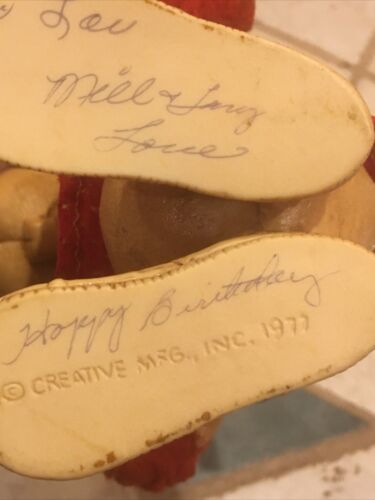 Lou
Mill &
Love
Happy Birthday
© CREATIVE MFG., INC. 1977